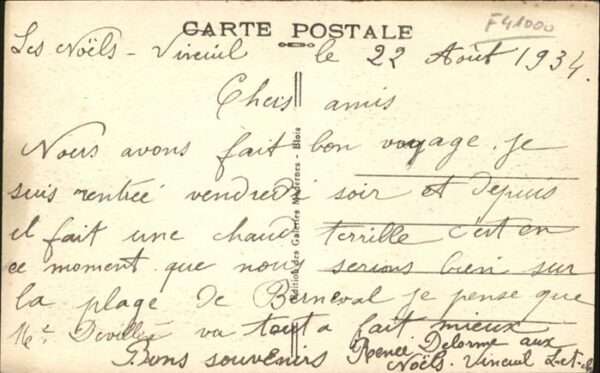 CARTE POSTALE
F41000
Les Noëls - Vineuil le 22 Août 1934.
Chers amis
Nous avons fait bon voyage. je
suis rentrée vendredi soir et depuis
il fait une chaud terrille c'est en
ce moment que nous serions bien sur
la plage de Berneval je pense que
va tout a fait mieux
Bons souvenirs Renée Delorme aux
Noëls. Vineuil L-et-ch
Edition des Galeries Modernes - Blois